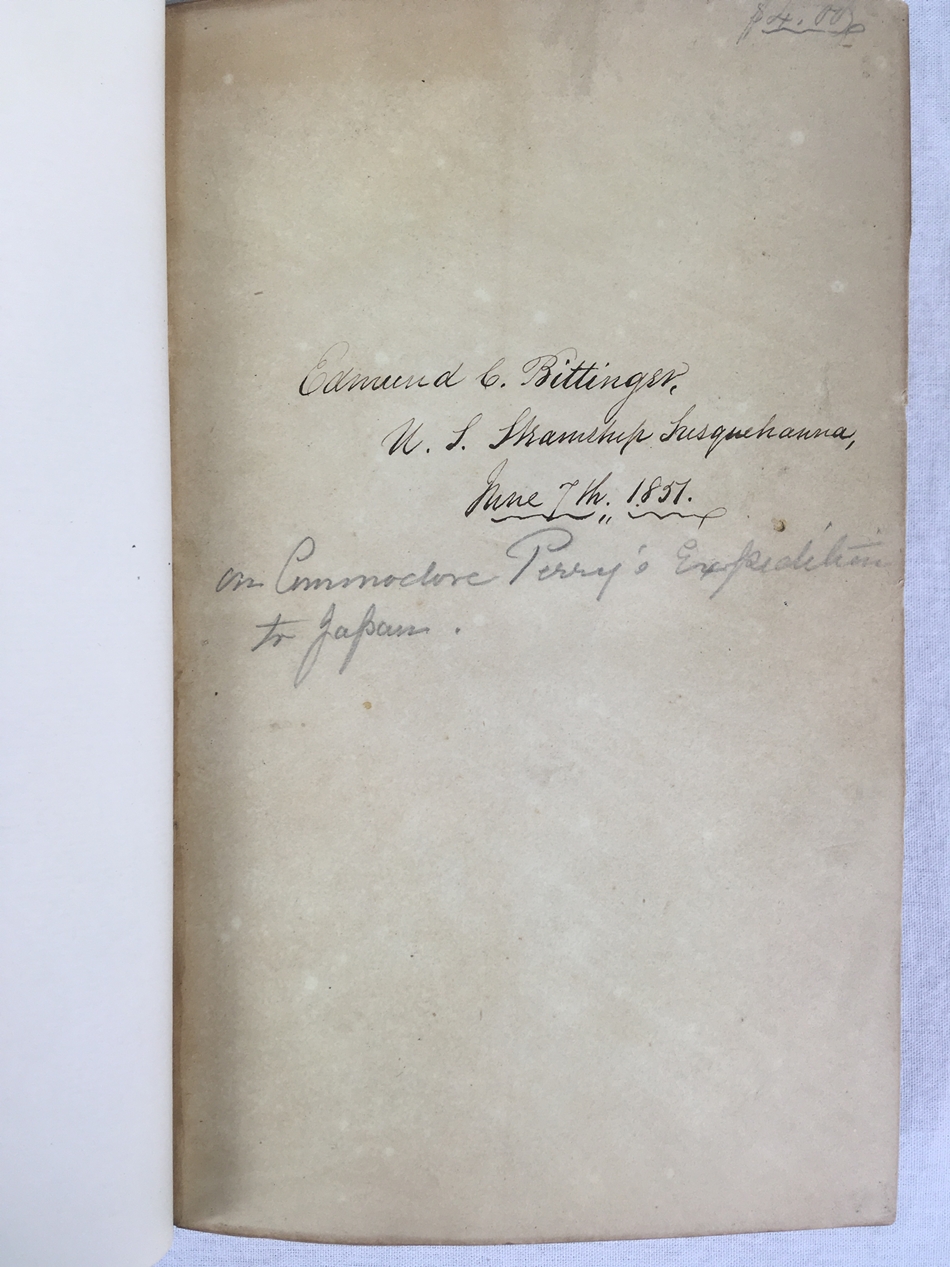 $4.00
Edmund C. Bittinger,
U. S. Steamship Susquehanna,
June 7th, 1851.
on Commodore Perry's Expedition
to Japan.